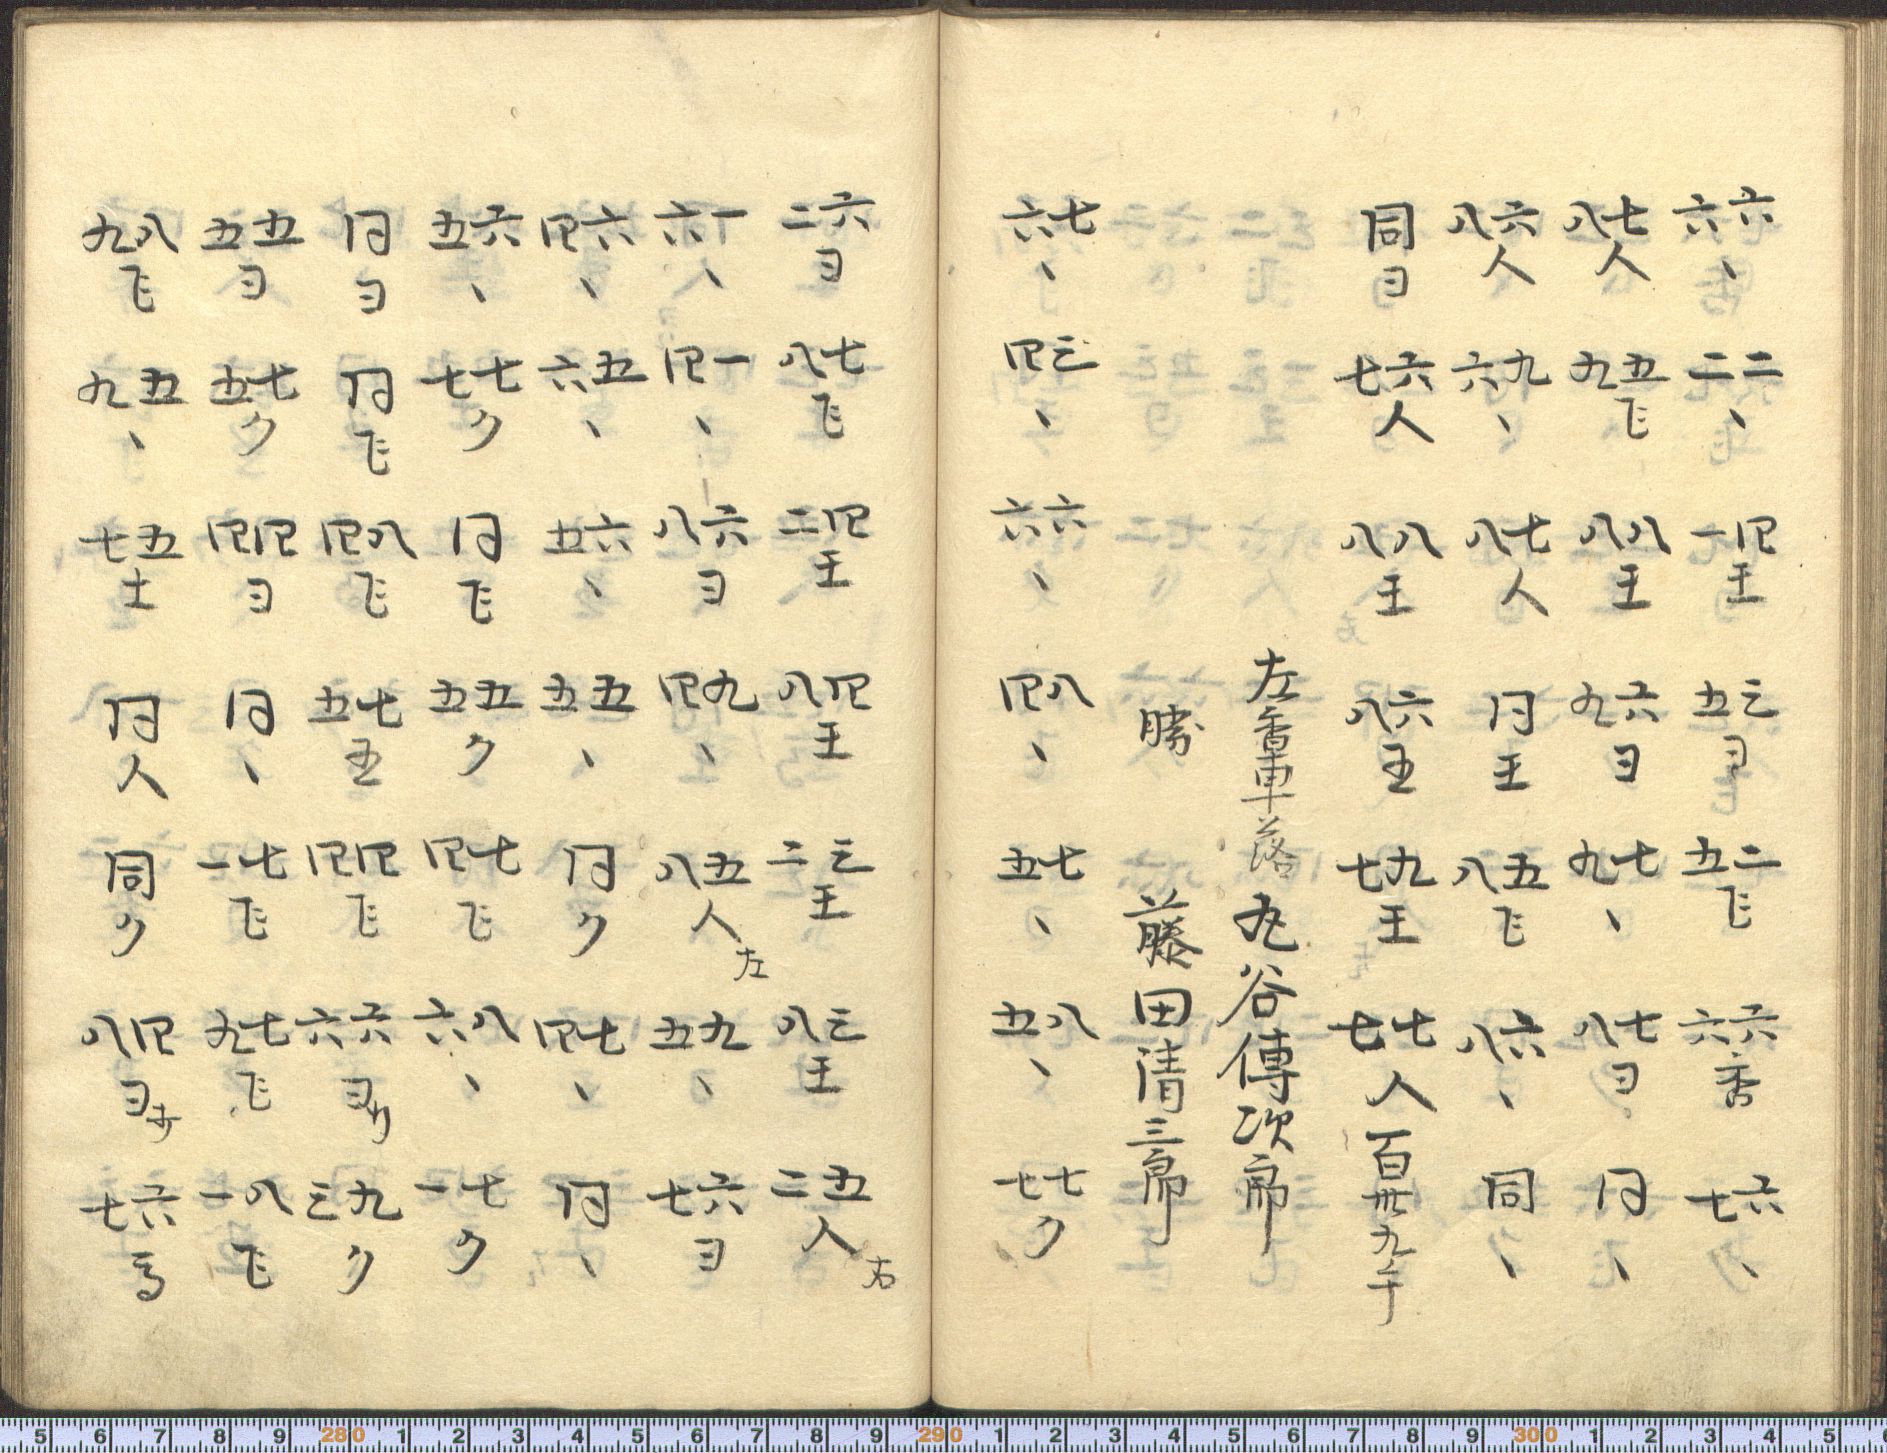 六六、 二二、 四一王 三五ヨ 二五飞 六六香 六七、
七八人 五九飞 八八王 六九ヨ 七九、 七八ヨ 同、
六八人 九六、 七八人 同王 五八飞 六八、 同、
同ヨ 六七人 八八王 六八玉 九七王 七七入 百卌九手
左香車落 丸谷傳次郎
勝 藤田清三郎
七六、 三四、 六六、 八四、 七五、 八五、 七七ク
六二ヨ 七八飞 四二王 四八王 三二王 三八王 五二人右
一六、 一四、 六八ヨ 九四、 五八人左 九五、 六七ヨ
六四、 五六、 六五、 五五、 同ク 七四、 同、
六五、 七七ク 同飞 五五ク 七四飞 八六、 七一ク
同ヨ 同飞 八四飞 七五玉 四四飞 六六ヨ打 九三ク
五五ヨ 七五ク 四四ヨ 同、 七一飞 七九飞 八一飞
八九飞 五九、 五七土 同人 同ク 四八ヨ打 六七馬
5 6 7 8 9 280 1 2 3 4 5 6 7 8 9 290 1 2 3 4 5 6 7 8 9 300 1 2 3 4 5